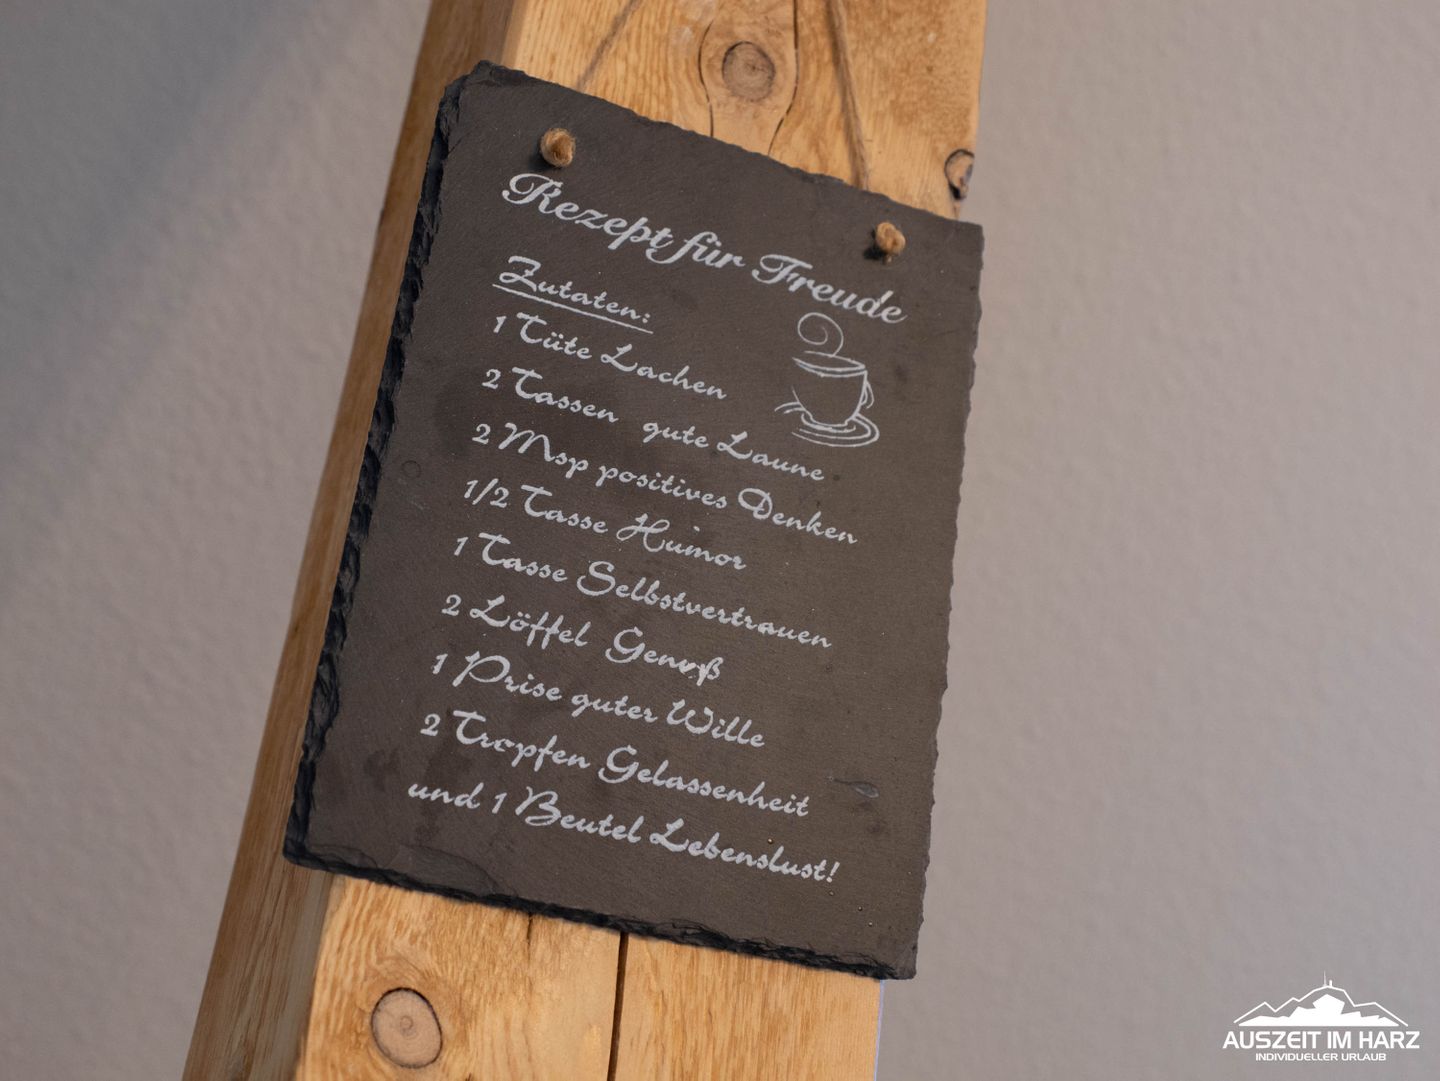 Rezept für Freude
Zutaten:
1 Tüte Lachen
2 Tassen gute Laune
2 Msp positives Denken
1/2 Tasse Humor
1 Tasse Selbstvertrauen
2 Löffel Genuß
1 Prise guter Wille
2 Tropfen Gelassenheit
und 1 Beutel Lebenslust!
AUSZEIT IM HARZ
INDIVIDUELLER URLAUB